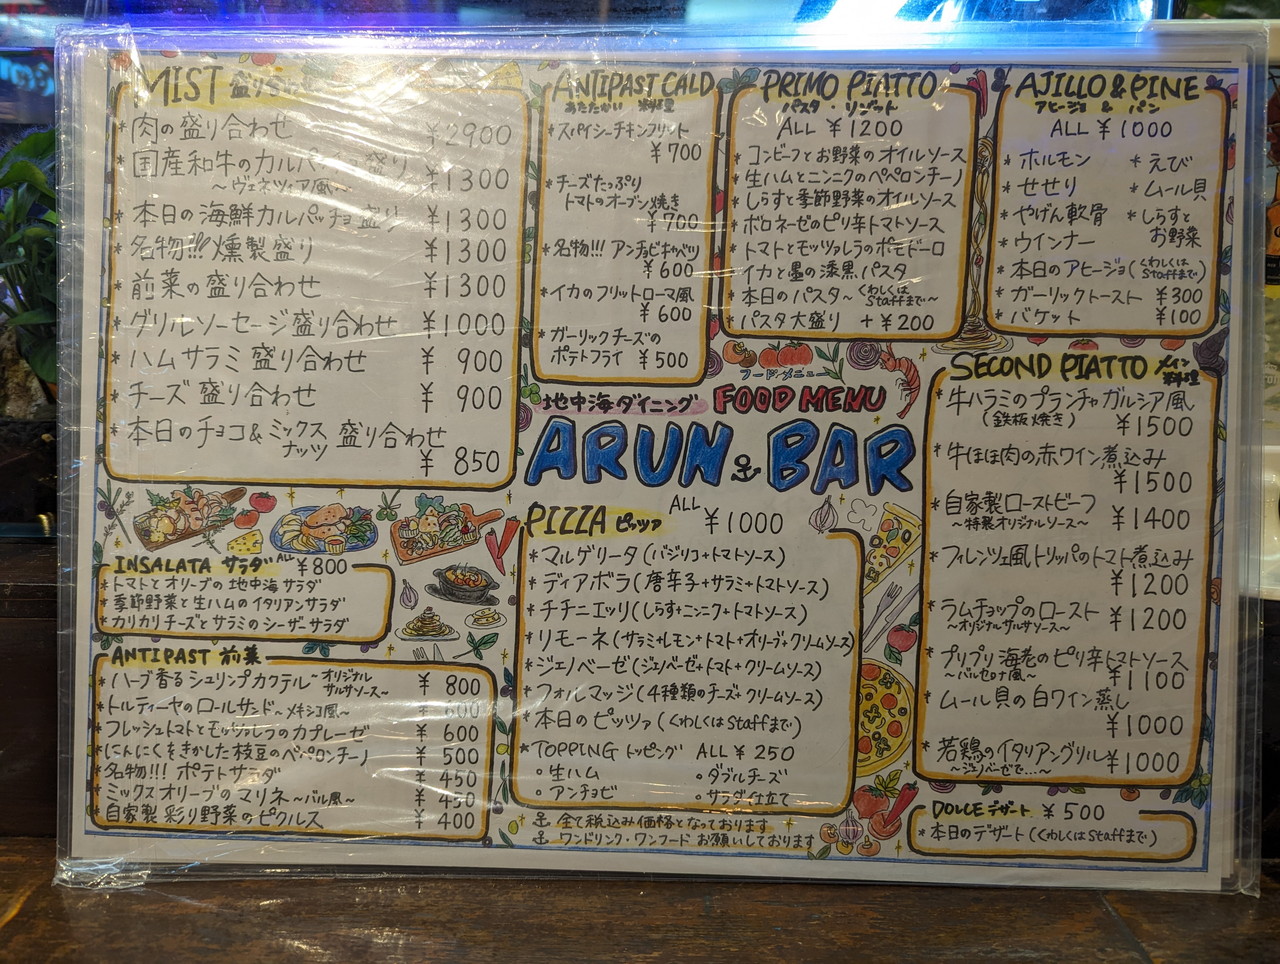 MIST 盛り合わせ
*肉の盛り合わせ ¥2900
*国産和牛のカルパッチョ盛り
〜ヴェネツィア風〜 ¥1300
*本日の海鮮カルパッチョ盛り ¥1300
*名物!!! 燻製盛り ¥1300
*前菜の盛り合わせ ¥1300
*グリルソーセージ盛り合わせ ¥1000
*ハムサラミ盛り合わせ ¥900
*チーズ盛り合わせ ¥900
*本日のチョコ&ミックスナッツ 盛り合わせ
¥850
INSALATA サラダ ALL ¥800
*トマトとオリーブの地中海サラダ
*季節野菜と生ハムのイタリアンサラダ
*カリカリチーズとサラミのシーザーサラダ
ANTIPAST 前菜
*ハーブ香るシュリンプカクテル〜オリジナルサルサソース〜 ¥800
*トルティーヤのロールサンド〜メキシコ風〜 ¥600
*フレッシュトマトとモッツァレラのカプレーゼ ¥600
*にんにくをきかした枝豆のペペロンチーノ ¥500
*名物!!! ポテトサラダ ¥450
*ミックスオリーブのマリネ〜バル風〜 ¥450
*自家製 彩り野菜のピクルス ¥400
ANTIPAST CALD
あたたかい 料理
*スパイシーチキンフリット
¥700
*チーズたっぷり
トマトのオーブン焼き
¥700
*名物!!! アンチョビキャベツ
¥600
*イカのフリットローマ風
¥600
*ガーリックチーズの
ポテトフライ ¥500
PRIMO PIATTO
パスタ・リゾット
ALL ¥1200
*コンビーフとお野菜のオイルソース
*生ハムとニンニクのペペロンチーノ
*しらすと季節野菜のオイルソース
*ボロネーゼのピリ辛トマトソース
*トマトとモッツァレラのポモドーロ
*イカと墨の漆黒パスタ
*本日のパスタ〜くわしくはStaffまで〜
*パスタ大盛り +¥200
AJILLO & PINE
アヒージョ & パン
ALL ¥1000
*ホルモン *えび
*せせり *ムール貝
*やげん軟骨 *しらすと
お野菜
*ウインナー
*本日のアヒージョ(くわしくはStaffまで)
*ガーリックトースト ¥300
*バケット ¥100
フードメニュー
地中海ダイニング FOOD MENU
ARUN BAR
PIZZA ピッツァ ALL ¥1000
*マルゲリータ(バジリコ+トマトソース)
*ディアボラ(唐辛子+サラミ+トマトソース)
*チチニエッリ(しらす+ニンニク+トマトソース)
*リモーネ(サラミ+レモン+トマト+オリーブ+クリームソース)
*ジェノベーゼ(ジェノベーゼ+トマト+クリームソース)
*フォルマッジ(4種類のチーズ+クリームソース)
*本日のピッツァ(くわしくはStaffまで)
*TOPPING トッピング ALL ¥250
◦生ハム ◦ダブルチーズ
◦アンチョビ ◦サラダ仕立て
全て税込み価格となっております
ワンドリンク・ワンフードお願いしております
SECOND PIATTO メイン料理
*牛ハラミのプランチャガルシア風
(鉄板焼き) ¥1500
*牛ほほ肉の赤ワイン煮込み
¥1500
*自家製ローストビーフ
〜特製オリジナルソース〜 ¥1400
*フィレンツェ風トリッパのトマト煮込み
¥1200
*ラムチョップのロースト
〜オリジナルサルサソース〜 ¥1200
*プリプリ海老のピリ辛トマトソース
〜バルセロナ風〜 ¥1100
*ムール貝の白ワイン蒸し
¥1000
*若鶏のイタリアングリル
〜ジェノベーゼで…〜 ¥1000
DOLCE デザート ¥500
*本日のデザート(くわしくはStaffまで)